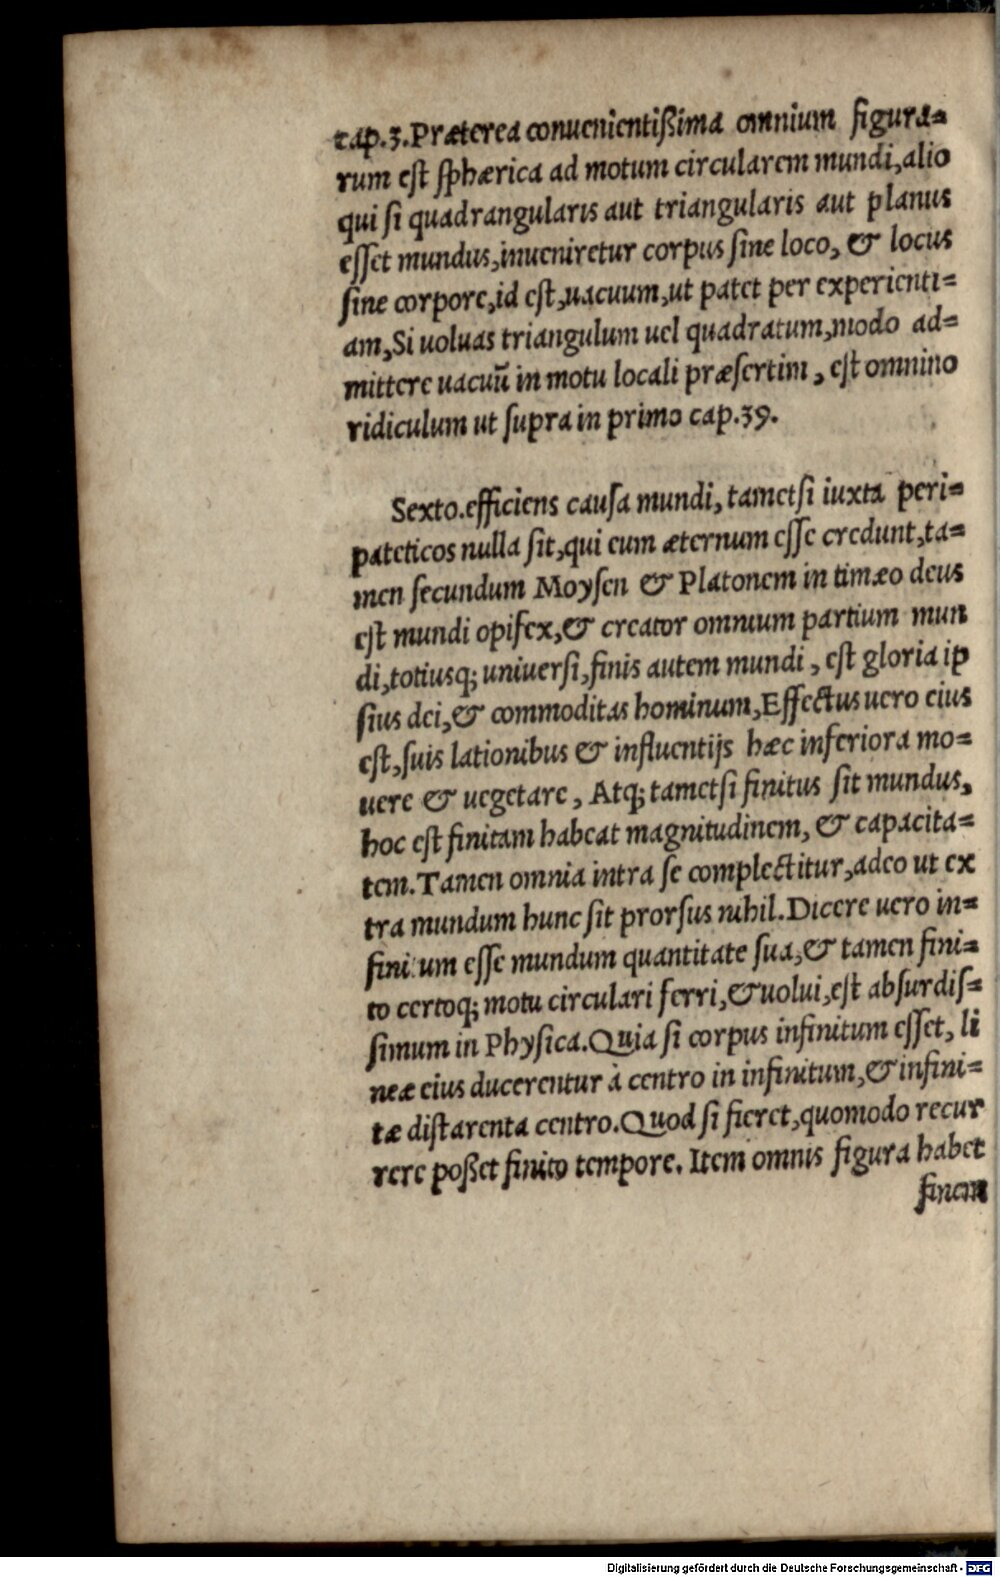 cap.3.Præterea conuenientißima omnium figura=
rum est sphærica ad motum circularem mundi,alio
qui si quadrangularis aut triangularis aut planus
esset mundus,inueniretur corpus sine loco, & locus
sine corpore,id est,uacuum,ut patet per experienti=
am,Si uoluas triangulum uel quadratum,modo ad=
mittere uacuū in motu locali præsertim , est omnino
ridiculum ut supra in primo cap.39.
Sexto.efficiens causa mundi, tametsi iuxta peri=
pateticos nulla sit,qui eum æternum esse credunt,ta=
men secundum Moysen & Platonem in timæo deus
est mundi opifex,& creator omnium partium mun
di,totiusq; uniuersi,finis autem mundi , est gloria ip
sius dei,& commoditas hominum,Effectus uero eius
est,suis lationibus & influentijs hæc inferiora mo=
uere & uegetare , Atq; tametsi finitus sit mundus,
hoc est finitam habeat magnitudinem, & capacita=
tem.Tamen omnia intra se complectitur,adeo ut ex
tra mundum hunc sit prorsus nihil.Dicere uero in=
finitum esse mundum quantitate sua,& tamen fini=
to certoq; motu circulari ferri,&uolui,est absurdis=
simum in Physica.Quia si corpus infinitum esset, li
neæ eius ducerentur à centro in infinitum,& infini=
tæ distarent a centro.Quod si fieret,quomodo recur
rere poßet finito tempore. Item omnis figura habet
finem
Digitalisierung gefördert durch die Deutsche Forschungsgemeinschaft - DFG